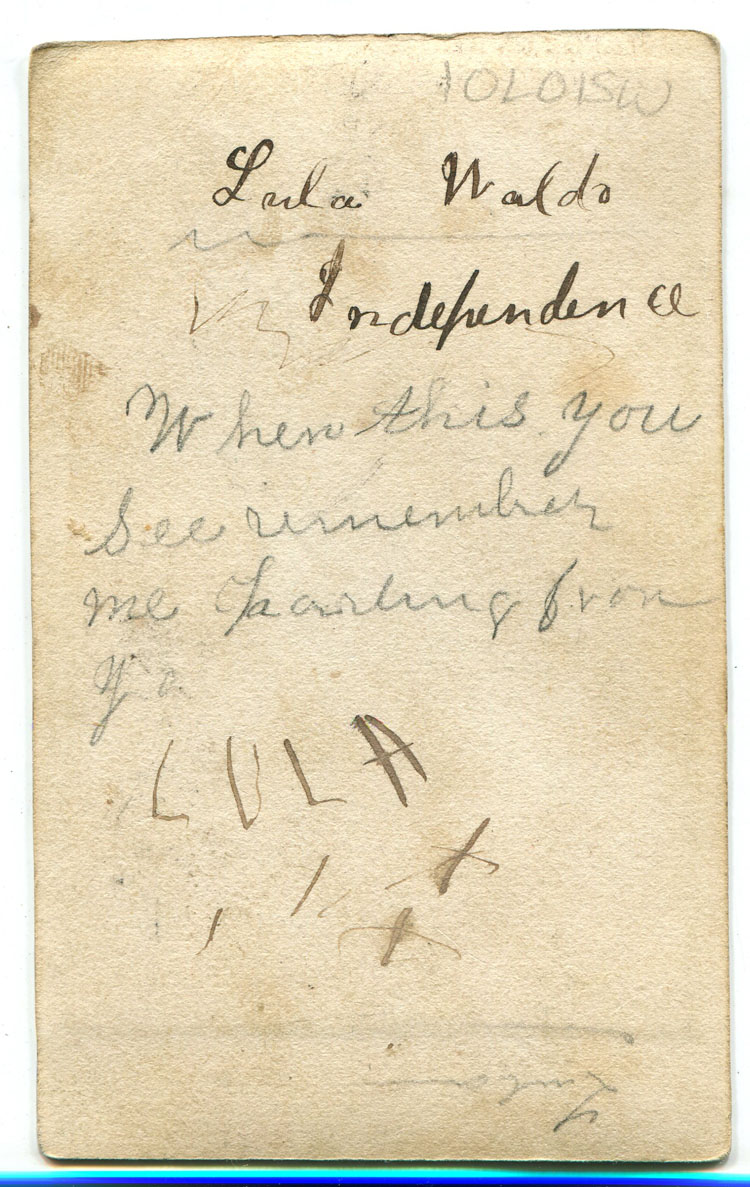 10L01SW
Lula Waldo
Independence
When this you
See remember
me parting from
Yo
LULA